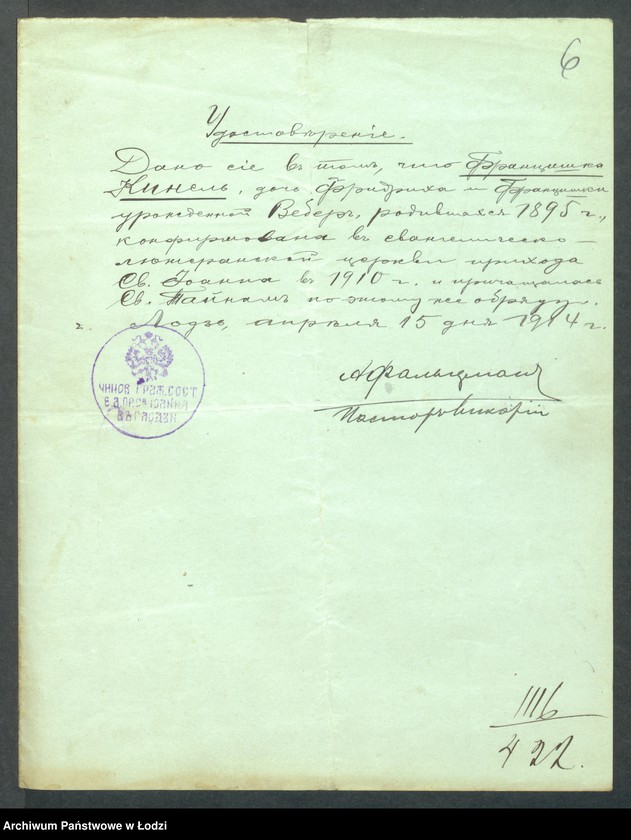 6
Удостовѣреніе.
Дано сіе въ томъ, что Францишка
Кинель, дочь Фридриха и Францишки
урожденной Веберъ, родившаяся 1895 г.,
конфирмована въ евангелическо-
лютеранской церкви прихода
Св. Іоанна въ 1910 г. и причащалась
Св. Тайнамъ по этому же обряду.
г. Лодзь, апрѣля 15 дня 1914 г.
ЧИНОВ. ГРАЖ. СОСТ
Е. А. ПР. СВ. ІОАННА
ВЪ Г. ЛОДЗИ
АФальцманъ
Пасторъ Викарій
1116
422.
Archiwum Państwowe w Łodzi